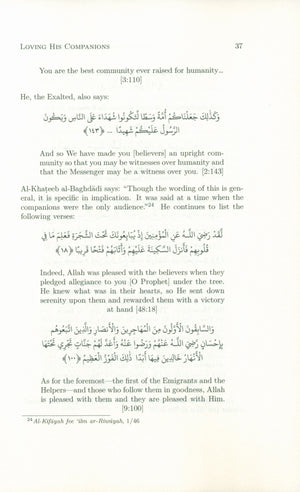 LOVING HIS COMPANIONS 37
You are the best community ever raised for humanity...
[3:110]
He, the Exalted, also says:
وَكَذَلِكَ جَعَلْنَاكُمْ أُمَّةً وَسَطًا لِّتَكُونُوا شُهَدَاءَ عَلَى النَّاسِ وَيَكُونَ
الرَّسُولُ عَلَيْكُمْ شَهِيدًا ... ﴿١٤٣﴾
And so We have made you [believers] an upright com-
munity so that you may be witnesses over humanity and
that the Messenger may be a witness over you. [2:143]
Al-Khaṭeeb al-Baghdādi says: “Though the wording of this is gen-
eral, it is specific in implication. It was said at a time when the
companions were the only audience.”24 He continues to list the
following verses:
لَّقَدْ رَضِيَ اللَّهُ عَنِ الْمُؤْمِنِينَ إِذْ يُبَايِعُونَكَ تَحْتَ الشَّجَرَةِ فَعَلِمَ مَا فِي
قُلُوبِهِمْ فَأَنزَلَ السَّكِينَةَ عَلَيْهِمْ وَأَثَابَهُمْ فَتْحًا قَرِيبًا ﴿١٨﴾
Indeed, Allah was pleased with the believers when they
pledged allegiance to you [O Prophet] under the tree.
He knew what was in their hearts, so He sent down
serenity upon them and rewarded them with a victory
at hand [48:18]
وَالسَّابِقُونَ الْأَوَّلُونَ مِنَ الْمُهَاجِرِينَ وَالْأَنصَارِ وَالَّذِينَ اتَّبَعُوهُم
بِإِحْسَانٍ رَّضِيَ اللَّهُ عَنْهُمْ وَرَضُوا عَنْهُ وَأَعَدَّ لَهُمْ جَنَّاتٍ تَجْرِي تَحْتَهَا
الْأَنْهَارُ خَالِدِينَ فِيهَا أَبَدًا ذَلِكَ الْفَوْزُ الْعَظِيمُ ﴿١٠٠﴾
As for the foremost—the first of the Emigrants and the
Helpers—and those who follow them in goodness, Allah
is pleased with them and they are pleased with Him.
[9:100]
24 Al-Kifāyah fee ʿilm ar-Riwāyah, 1/46